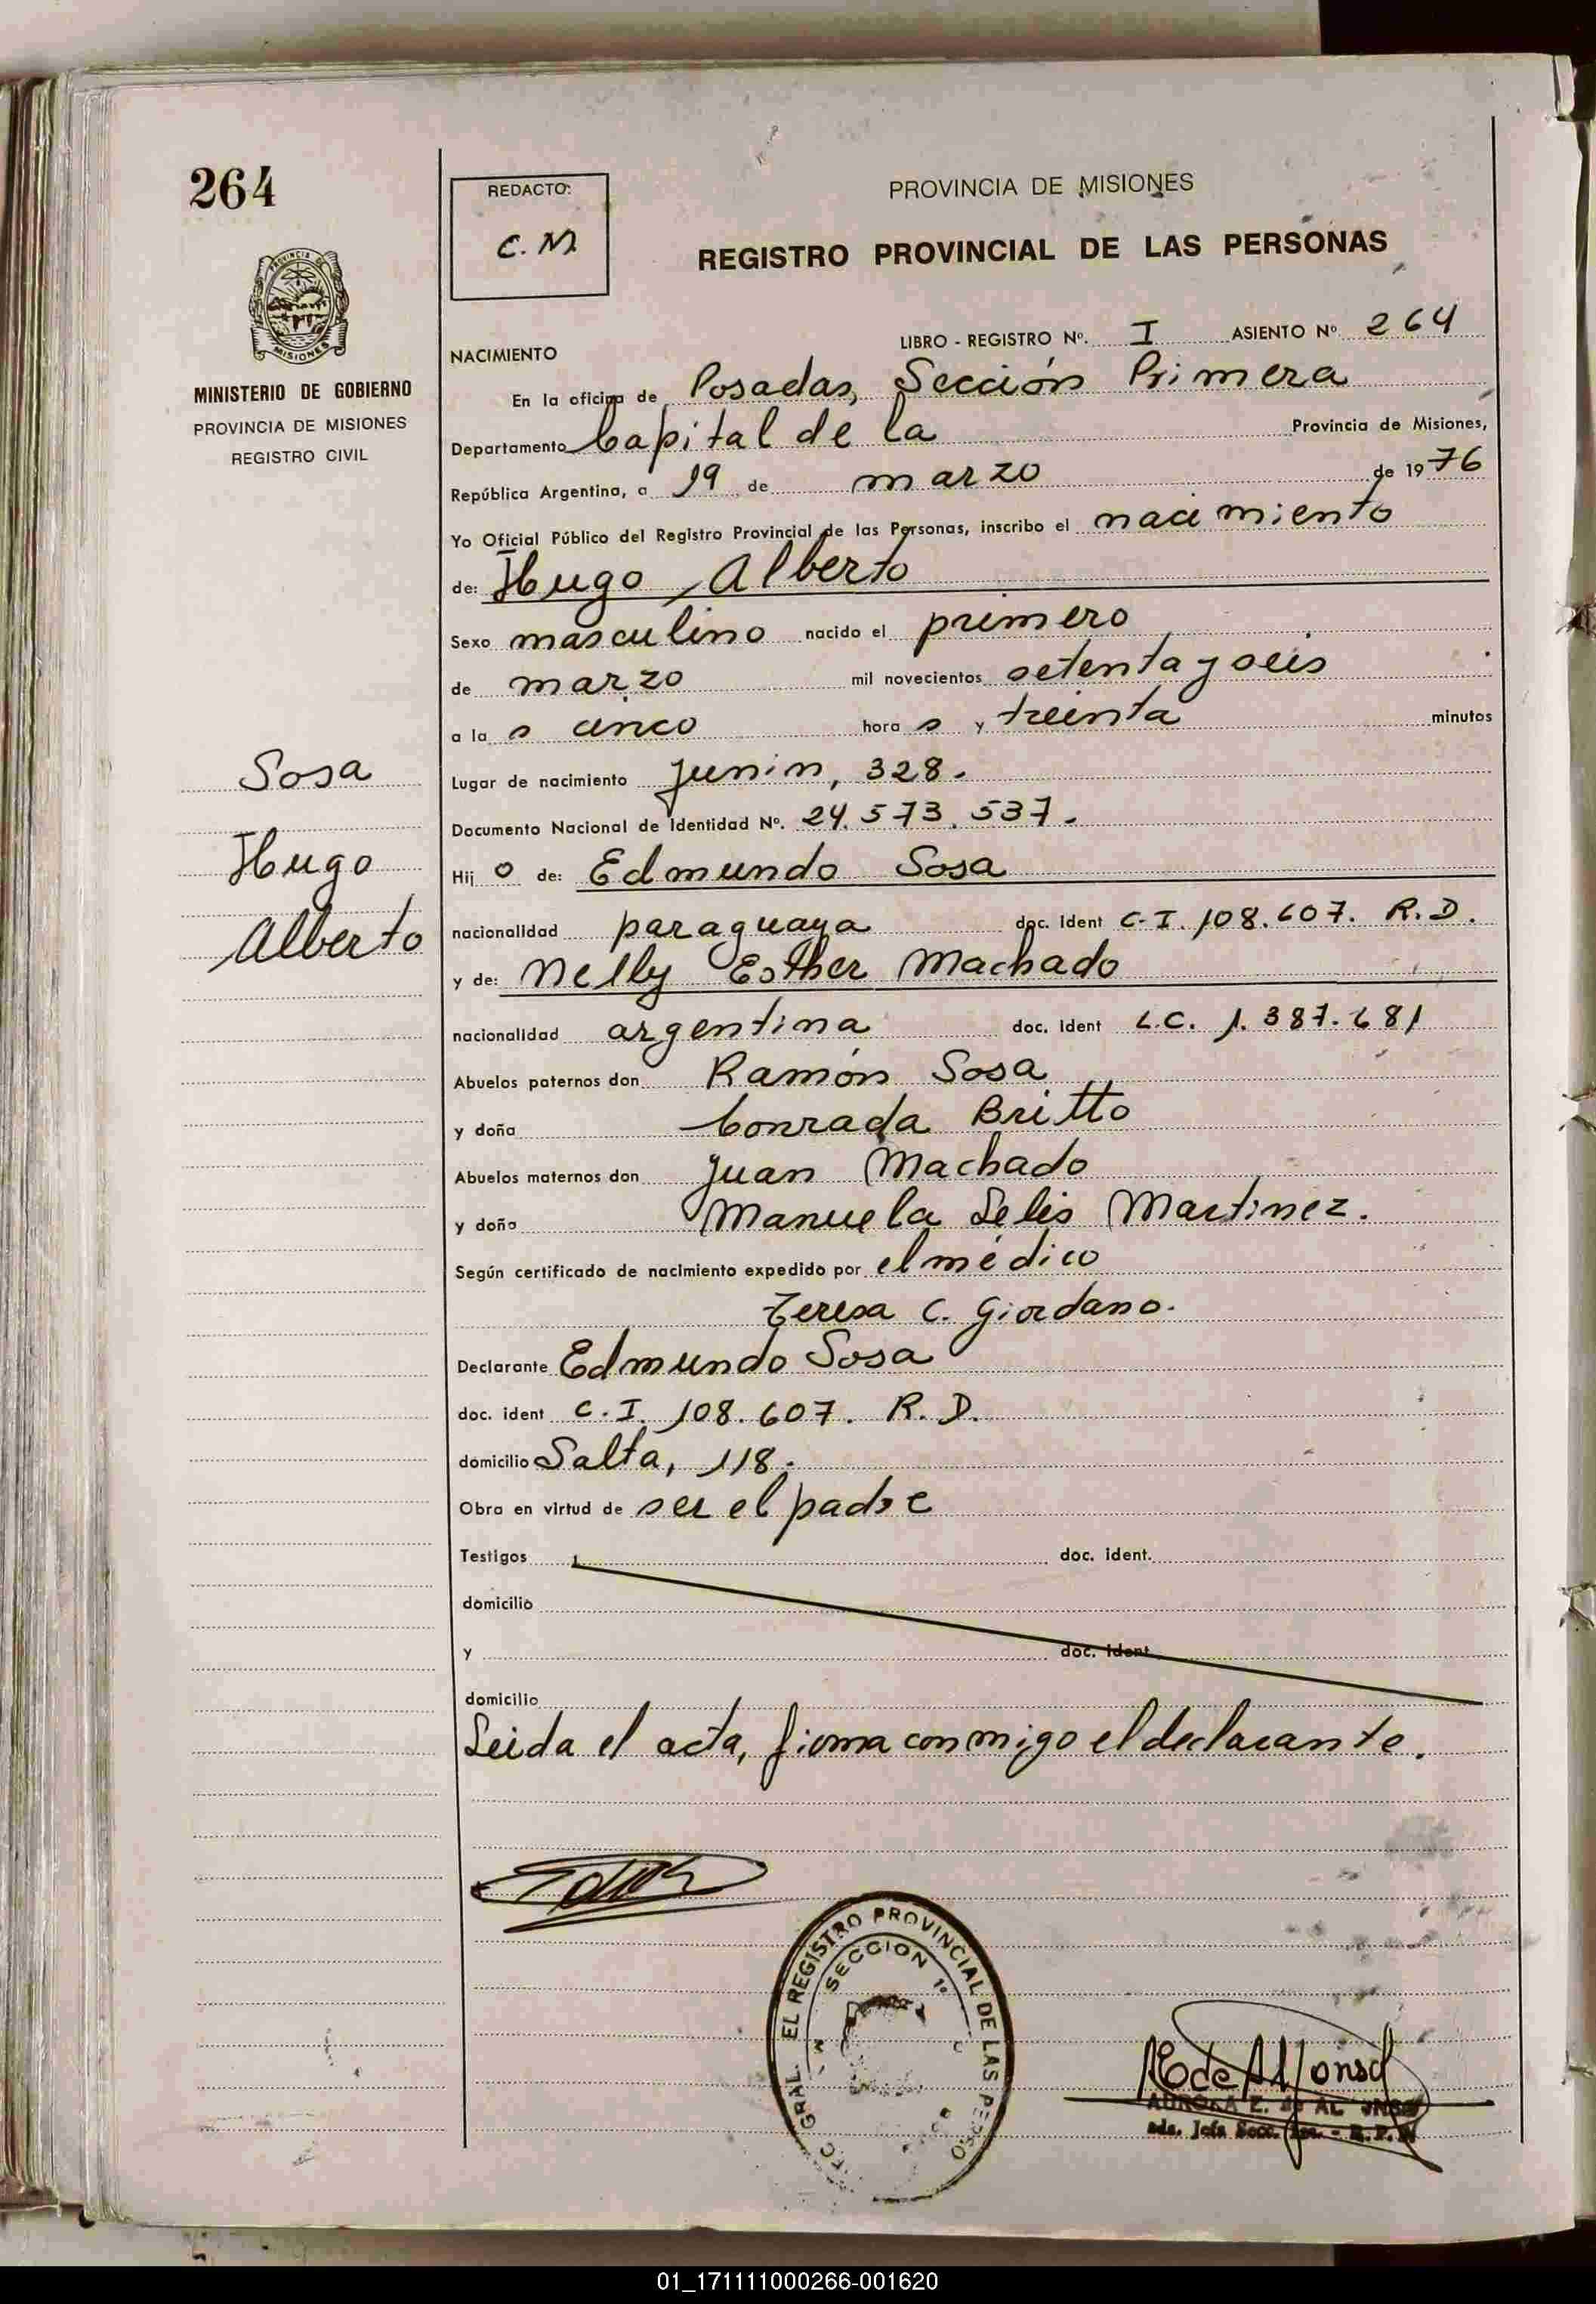 264
REDACTO:
C. M
PROVINCIA DE MISIONES
REGISTRO PROVINCIAL DE LAS PERSONAS
PROVINCIA DE
MISIONES
MINISTERIO DE GOBIERNO
PROVINCIA DE MISIONES
REGISTRO CIVIL
LIBRO - REGISTRO Nº. I ASIENTO Nº 264
NACIMIENTO
En la oficina de Posadas, Sección Primera
Departamento Capital de la Provincia de Misiones,
República Argentina, a 19 de marzo de 1976
Yo Oficial Público del Registro Provincial de las Personas, inscribo el nacimiento
de: Hugo Alberto
Sexo masculino nacido el primero
de marzo mil novecientos setenta y seis
a la s cinco hora s y treinta minutos
Sosa
Hugo
Alberto
Lugar de nacimiento Junin, 328.
Documento Nacional de Identidad Nº. 24.573.537.
Hij o de: Edmundo Sosa
nacionalidad paraguaya doc. Ident C.I. 108.607. R.D.
y de: Nelly Esther Machado
nacionalidad argentina doc. Ident L.C. 1.387.681
Abuelos paternos don Ramón Sosa
y doña Conrada Britto
Abuelos maternos don Juan Machado
y doña Manuela Selis Martinez.
Según certificado de nacimiento expedido por el médico
Teresa C. Giordano.
Declarante Edmundo Sosa
doc. ident C.I. 108.607. R.D.
domicilio Salta, 118.
Obra en virtud de ser el padre
Testigos doc. ident.
domicilio
y doc. ident
domicilio
Leida el acta, firma conmigo el declarante.
GRAL. EL REGISTRO PROVINCIAL DE LAS PERSO
SECCION 1º
AEdeAlfonso
AURORA E. de AL
Jefa Secc.
01_171111000266-001620